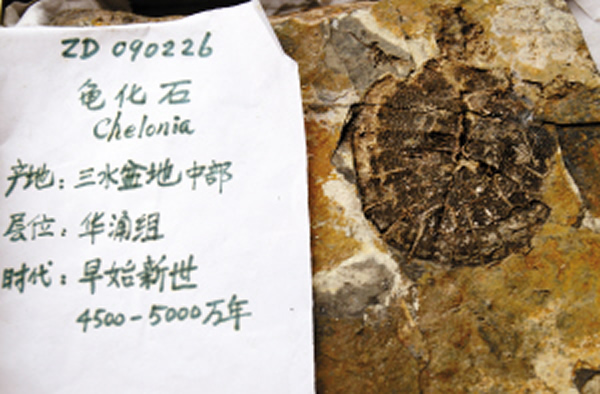 ZD 090226
龟化石
Chelonia
产地：三水盆地中部
层位：华涌组
时代：早始新世
4500-5000万年